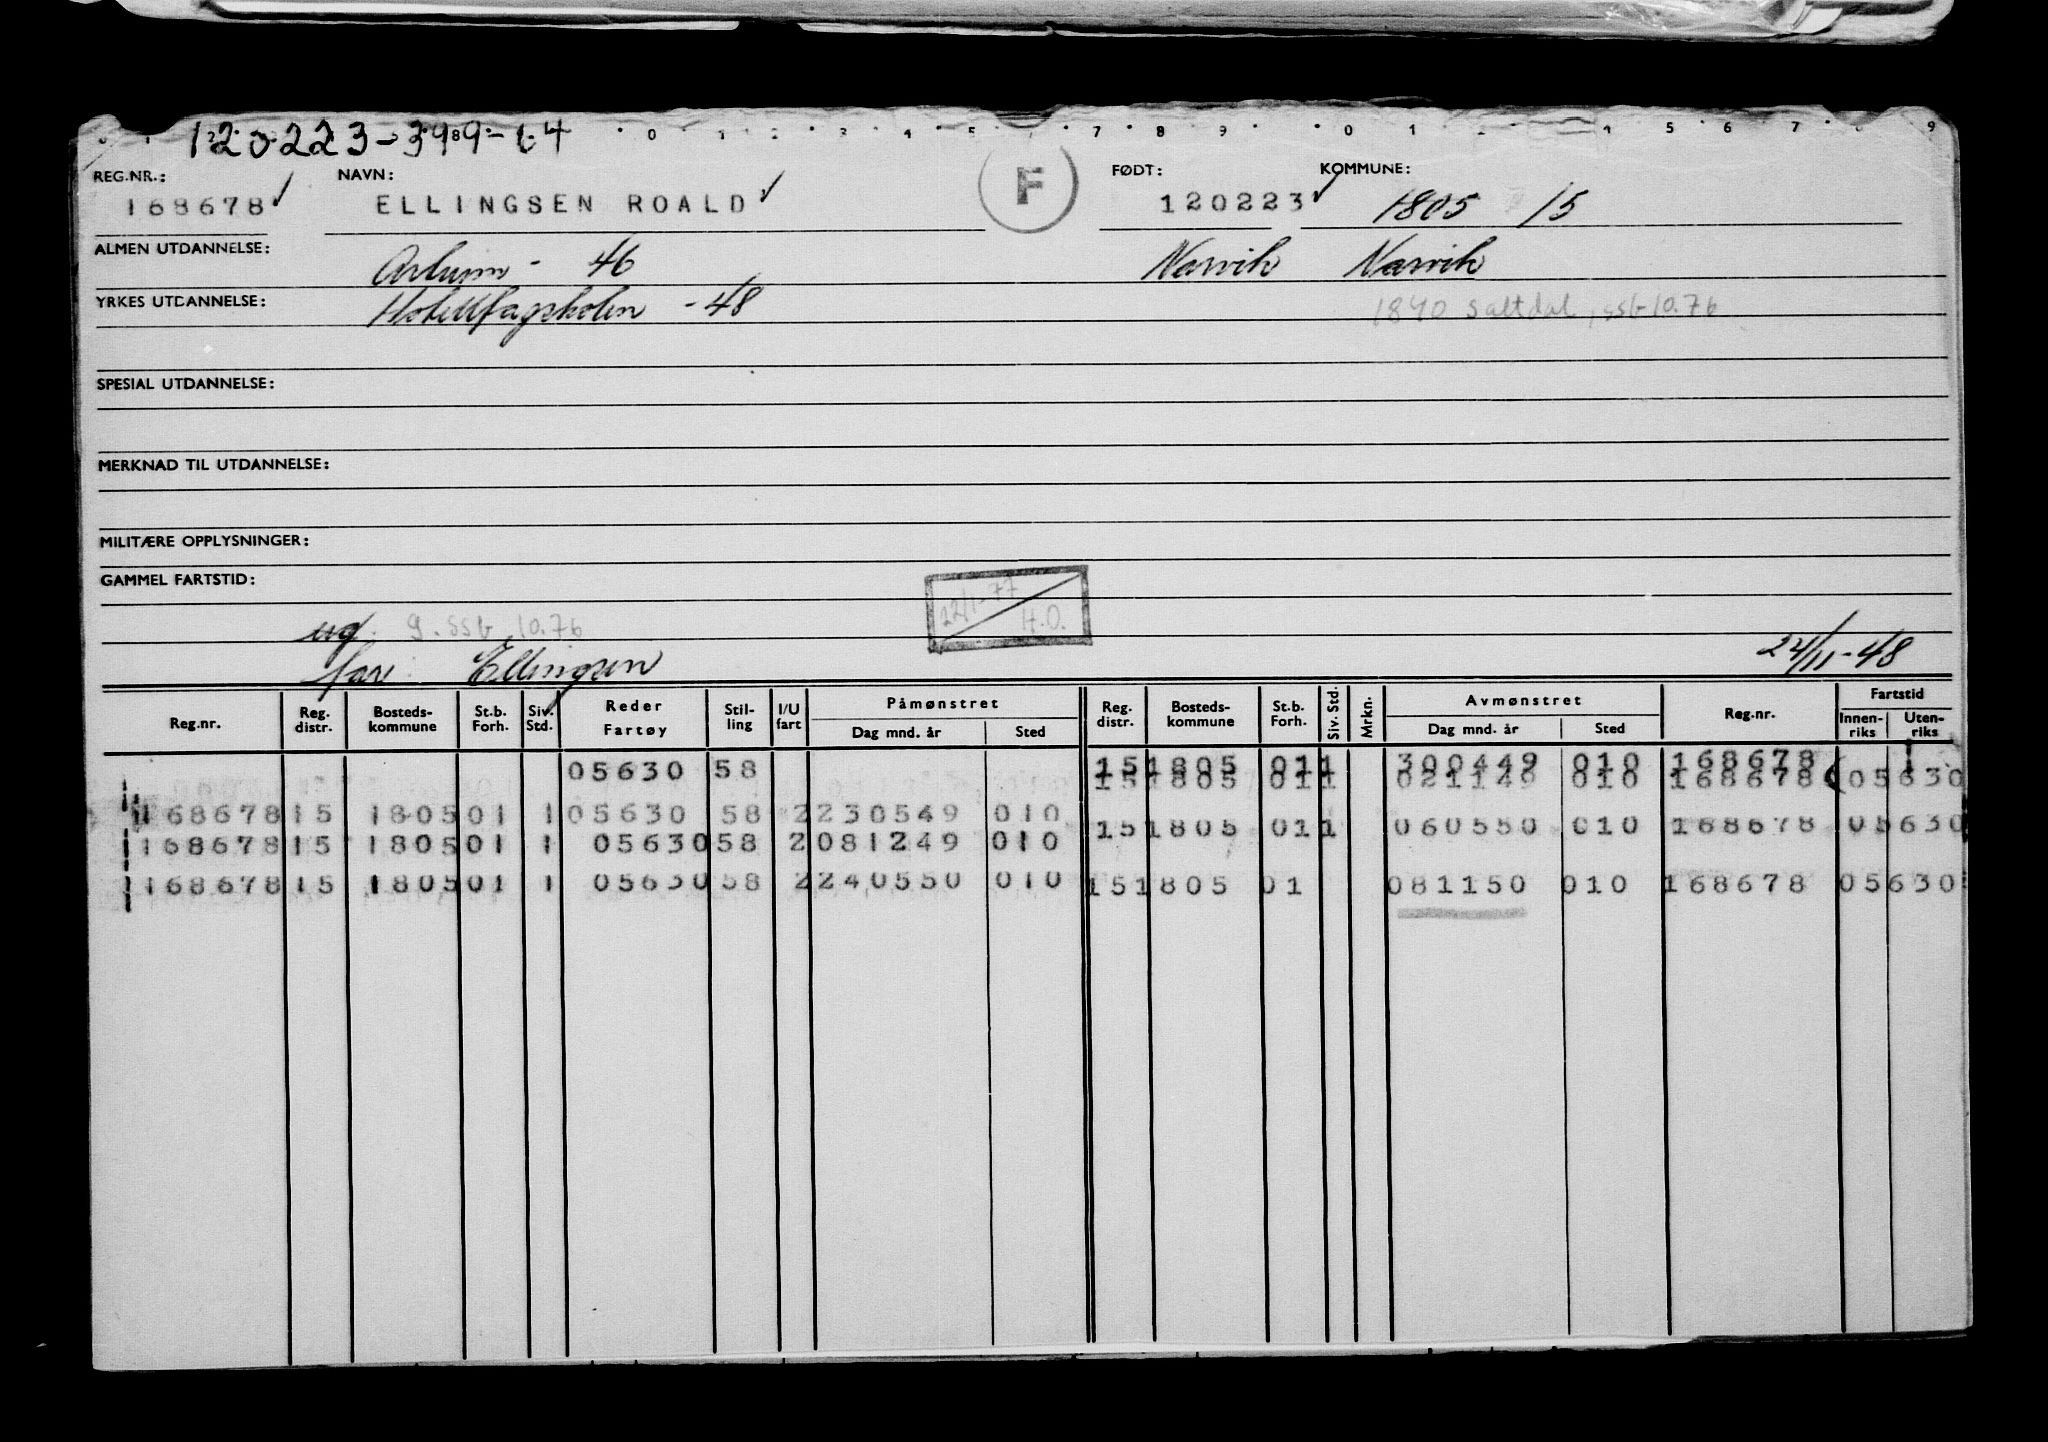 120223-39989-14
REG.NR.: NAVN: F FØDT: KOMMUNE:
168678 ELLINGSEN ROALD 120223 1805 15
ALMEN UTDANNELSE: - 46 Narvik Narvik
YRKES UTDANNELSE: Hotellfagskolen - 48 1840 Saltdal, ssb 10.76
SPESIAL UTDANNELSE:
MERKNAD TIL UTDANNELSE:
MILITÆRE OPPLYSNINGER:
GAMMEL FARTSTID:
22/1-77 H.O.
ug. g. ssb 10.76
far: Ellingsen 24/11-48
Reg.nr. Reg. distr. Bosteds-kommune St.b. Forh. Siv. Std. Reder Fartøy Stil-ling I/U fart Påmønstret Dag mnd. år Sted Reg. distr. Bosteds-kommune St.b. Forh. Siv. Std. Mrkn. Avmønstret Dag mnd. år Sted Reg.nr. Fartstid Innen-riks Uten-riks
05630 58 15 1805 01 1 300449 010 168678
15 1805 01 1 021149 010 168678 05630
168678 15 1805 01 1 05630 58 2 230549 010
15 1805 01 1 060550 010 168678 05630
168678 15 1805 01 1 05630 58 2 081249 010
168678 15 1805 01 1 05630 58 2 240550 010 15 1805 01 081150 010 168678 05630